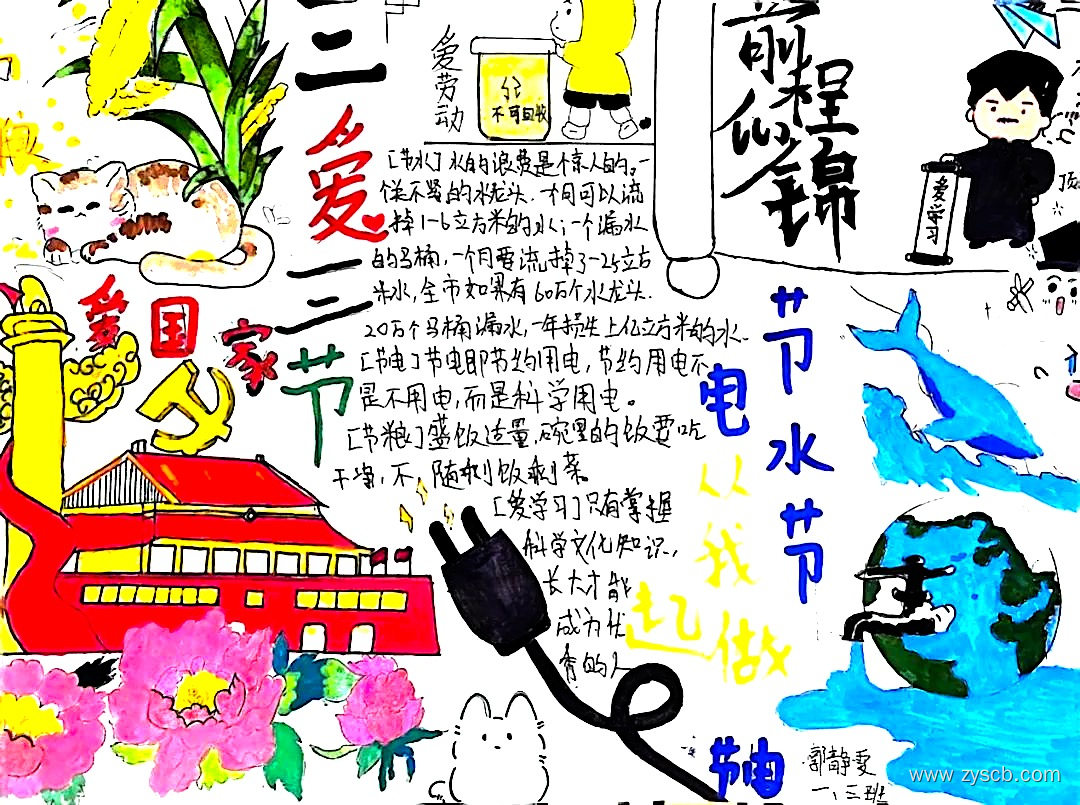 三爱三节
爱劳动
不可回收
前程似锦
爱学习
[节水]水的浪费是惊人的。一
个关不紧的水龙头.一个月可以流
掉1-6立方米的水;一个漏水
的马桶,一个月要流掉3-25立方
米水,全市如果有60万个水龙头.
20万个马桶漏水,一年损失上亿立方米的水.
[节电]节电即节约用电,节约用电不
是不用电,而是科学用电。
[节粮]盛饭适量,碗里的饭要吃
干净,不,随剩饭剩菜
[爱学习]只有掌握
科学文化知识,
长大才能
成为优
秀的人
爱国家
节水节
电
从我
做
起
节电
郭静雯
一、三班
www.zyscb.com